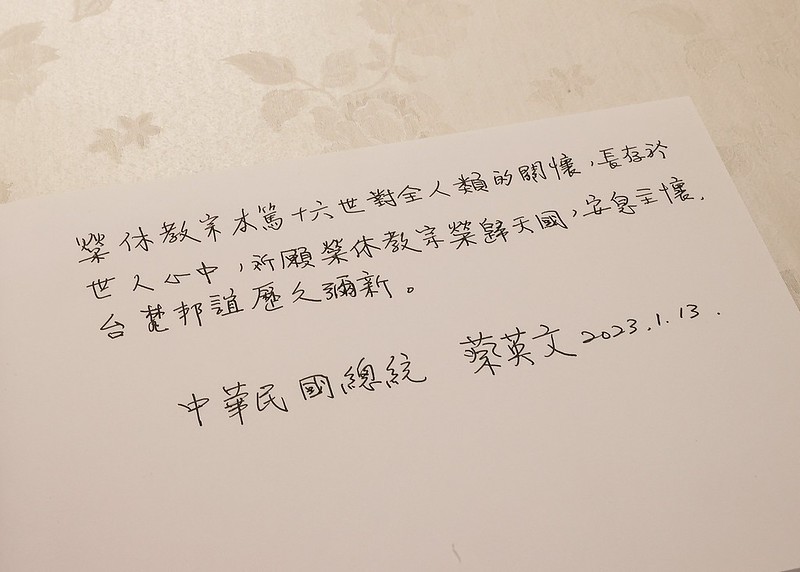 榮休教宗本篤十六世對全人類的關懷,長存於
世人心中,祈願榮休教宗榮歸天國,安息主懷.
台梵邦誼歷久彌新。
中華民國總統 蔡英文 2023.1.13.